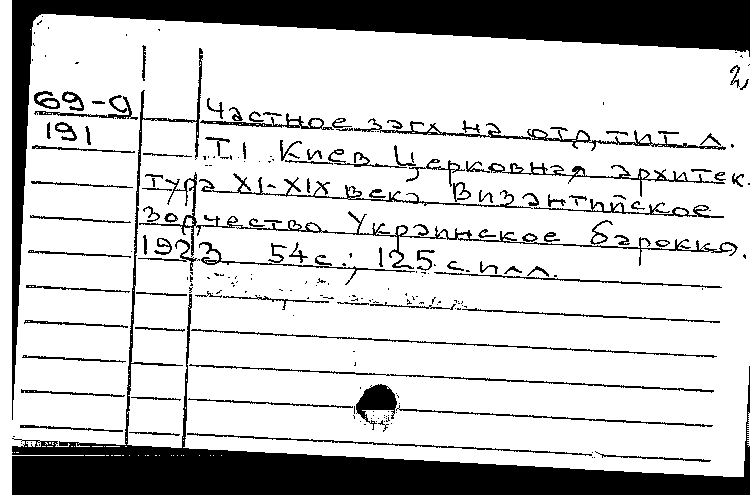 2
69-9
191
Частное загл. на отд. тит. л.
Т.1 Киев. Церковная архитек-
тура XI-XIX века. Византийское
зодчество. Украинское барокко.
1923. 54 с.; 125 с. илл.